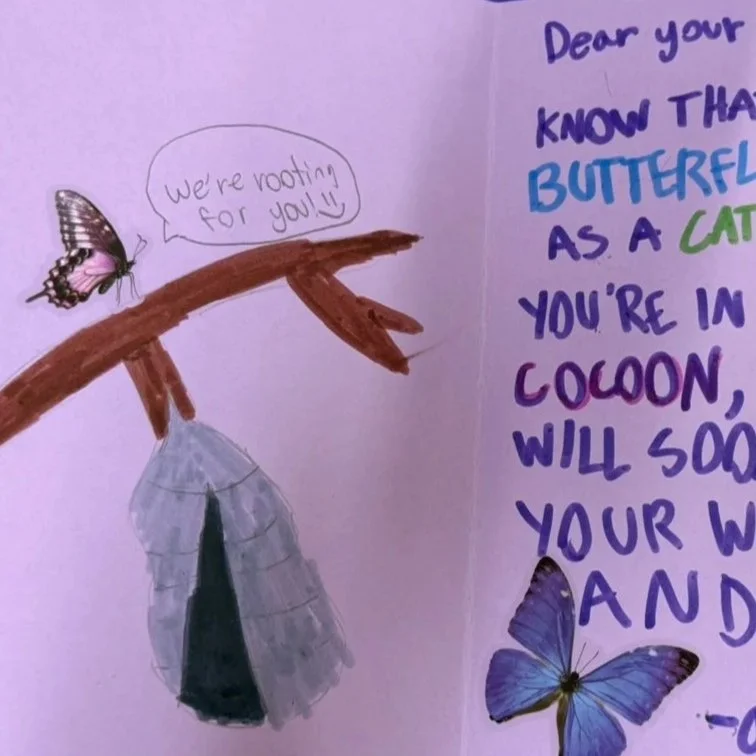 we're rooting
for you! :)
Dear your
KNOW THA
BUTTERFL
AS A CAT
YOU'RE IN
COCOON,
WILL SOO
YOUR W
AND